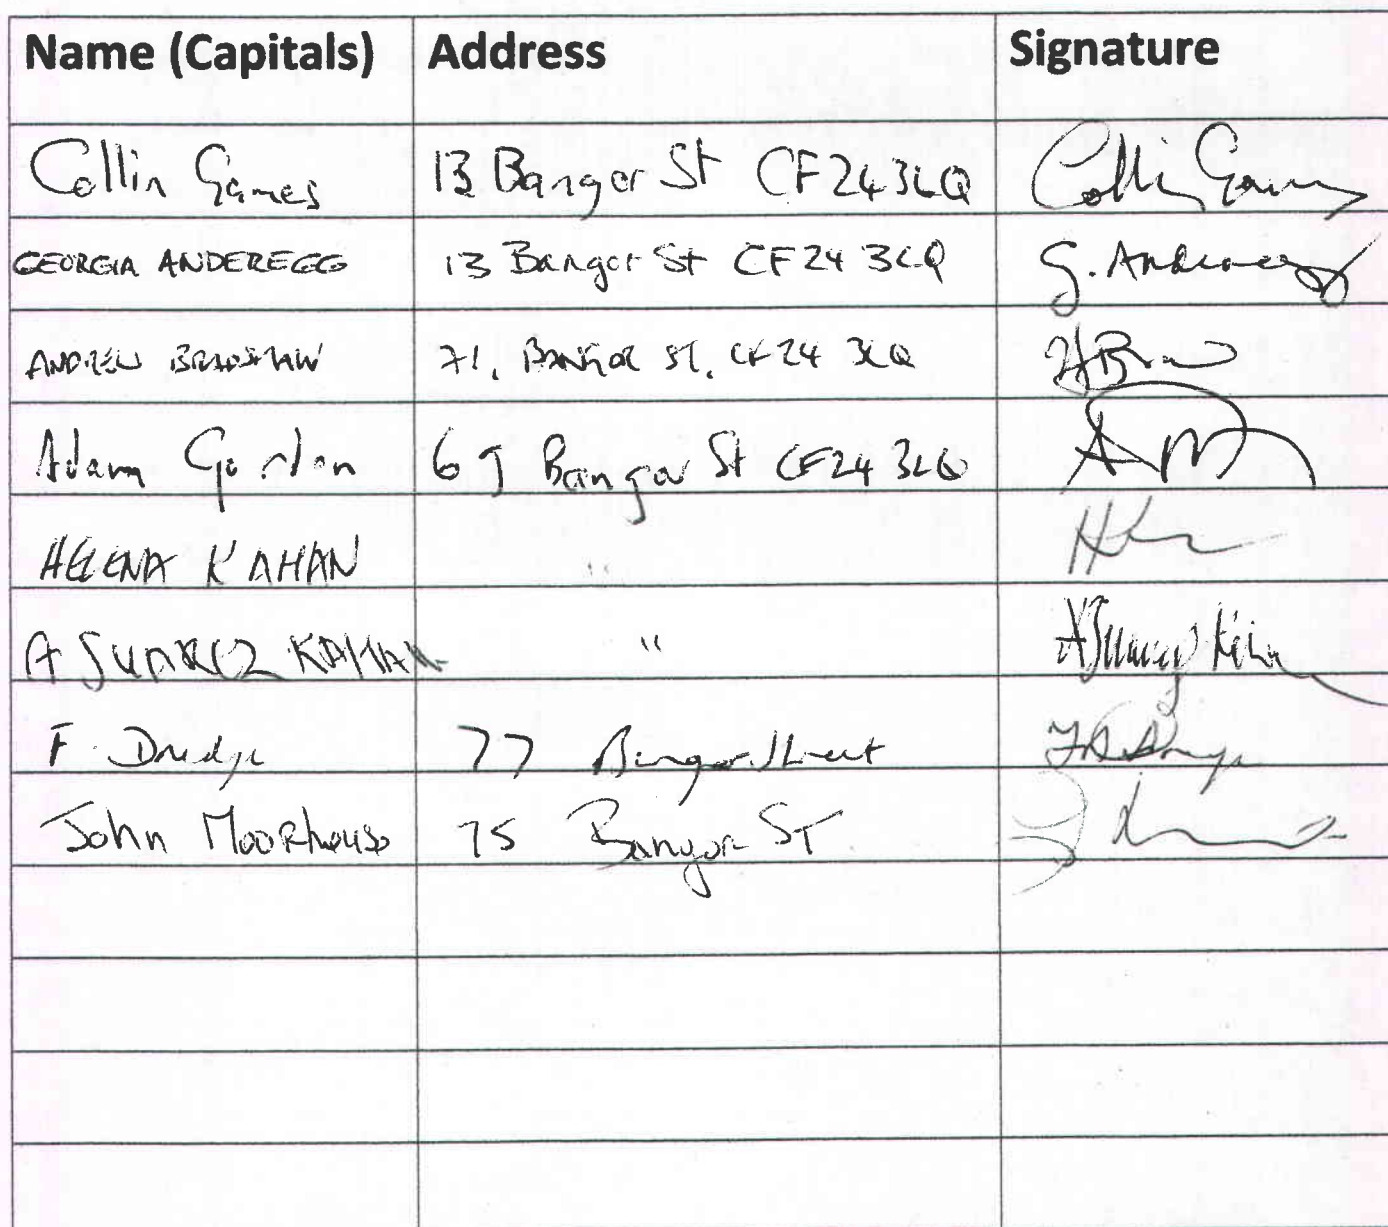 Name (Capitals) Address Signature
Collin Games 13 Bangor St CF24 3LQ Collin Games
GEORGIA ANDEREGG 13 Bangor St CF24 3LQ G. Anderegg
ANDREW BRADSHAW 71, BANGOR ST, CF24 3LQ
Adam Gordon Bangor St CF24 3LQ
HELENA KAHAN "
A SUAREZ KAHAN "
F. Dredge 77 Bangor Street
John Moorhouse 75 Bangor ST